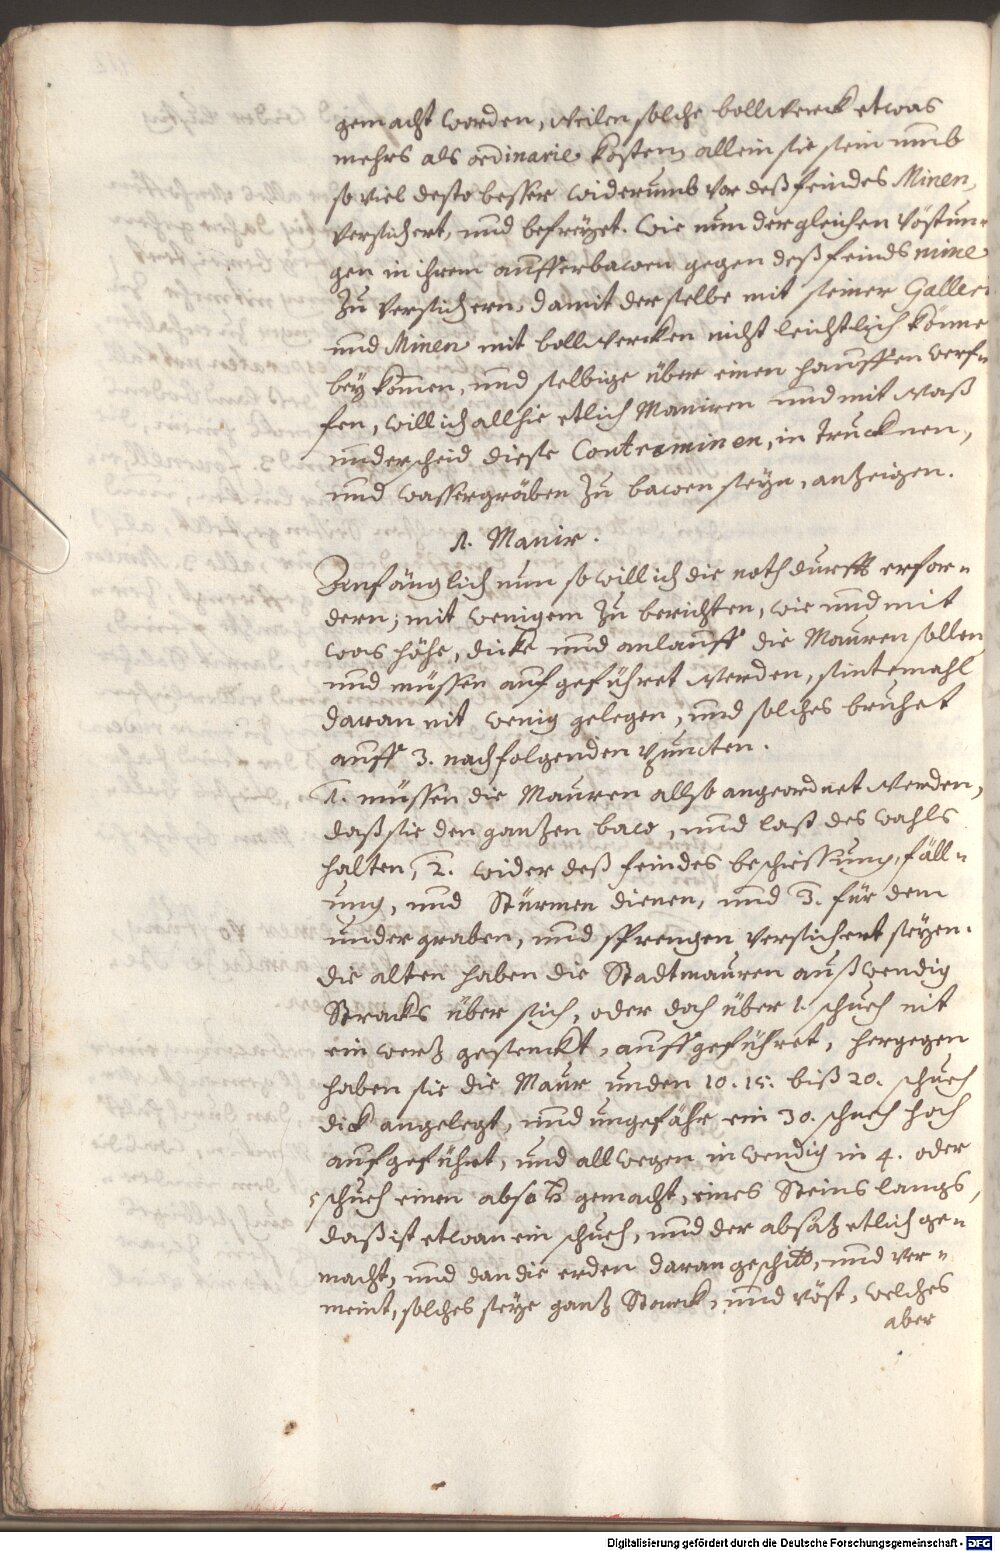 gemacht worden, weilen solche bollwerck etwas
mehrs als ordinarie kosten, allein sie sein umb
so viel desto besser widerumb vor deß feindes Minen,
versichert, und befreyet. Wie nun dergleichen Vöstun-
gen in ihrem aufferbawen gegen deß feinds mine
zu versichern, damit derselbe mit seiner Galleri
und Minen mit bollwercken nicht leichtlich könne
beykomen, und selbige über einen hauffen werf-
fen, will ich allhie etlich Maniren und mit waß
underscheid diese Conterminen, in trucknen,
und wassergräben zu bawen seyn, anzeigen.
1. Manir.
Anfänglich nun so will ich die nothdurfft erfor-
dern, mit wenigem zu berichten, wie und mit
was höhe, dicke und anlauff die Mauren sollen
und müssen auffgeführet werden, sintemahl
daran nit wenig gelegen, und solches bruhet
auff 3. nachfolgenden puncten.
1. müssen die Mauren allso angeordnet werden,
daß sie den gantzen baw, und last des wahls
halten, 2. wider deß feindes beschiessung, fäll-
ung, und Stürmen dienen, und 3. für dem
undergraben, und sprengen versichert seyen.
die alten haben die Stadtmauren außwendig
Stracks über sich, oder doch über 1. schueh nit
einwertz gesenckt, auffgeführet, hergegen
haben sie die Maur unden 10. 15. biß 20. schueh
dick angelegt, und ungefähr ein 30. schueh hoch
aufgeführt, und allwegen inwendig in 4. oder
5 schueh einen absatz gemacht, eines Steins langs,
daß ist etwan ein schueh, und der absätz etlich ge-
macht, und dan die erden daran geschitt, und ver-
meint, solches seye gantz Starck, und vöst, welches
aber
Digitalisierung gefördert durch die Deutsche Forschungsgemeinschaft - DFG